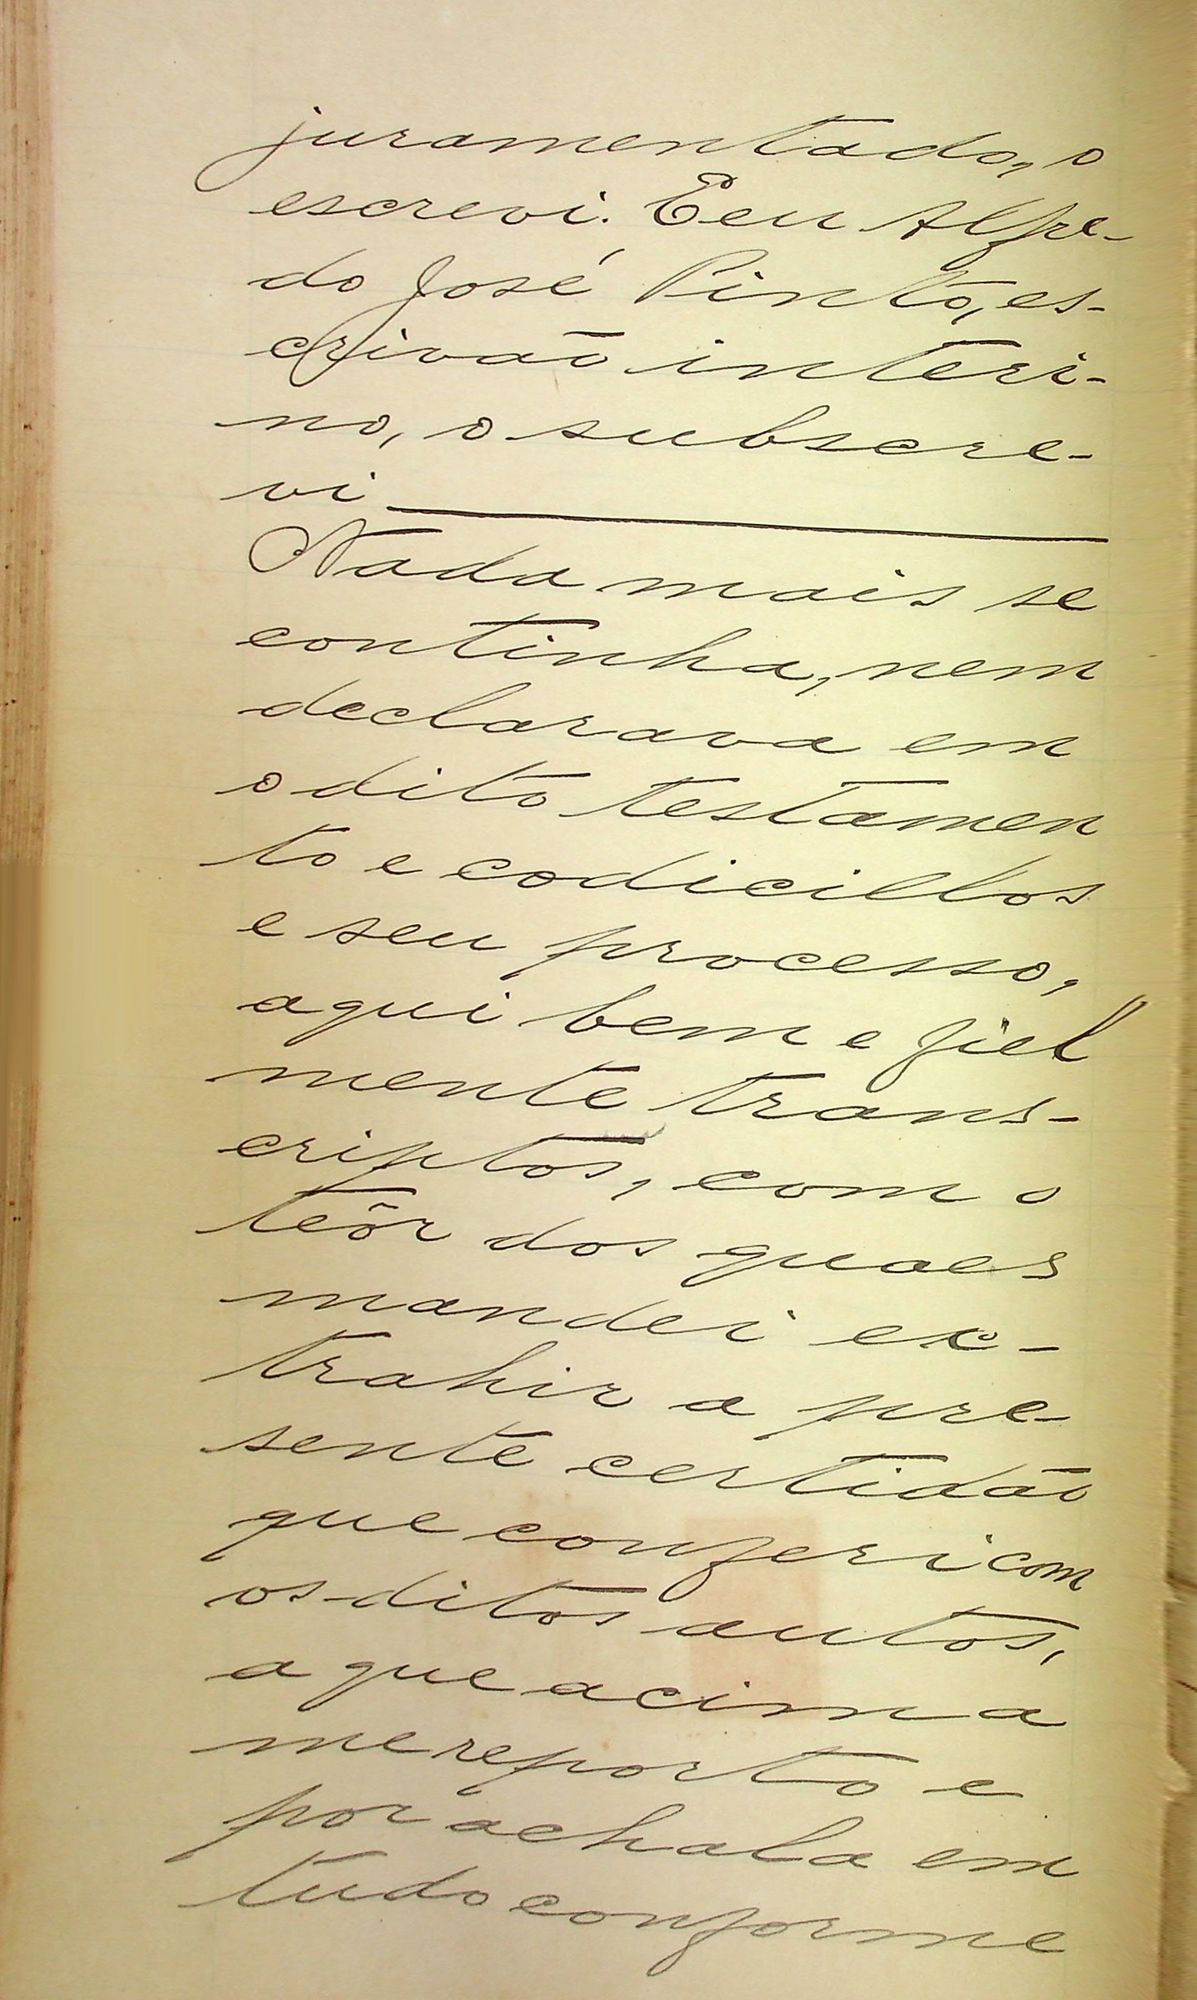 juramentado, o
escrevi. E eu Alfre-
do José Pinto, es-
crivão interi-
no, o subscre-
vi
Nada mais se
continha, nem
declarava em
o dito testamen
to e codicillos
e seu processo,
aqui bem e fiel
mente trans-
criptos, com o
teôr dos quaes
mandei ex-
trahir a pre-
sente certidão
que conferi com
os ditos autos,
a que acima
me reporto e
por achala em
tudo conforme